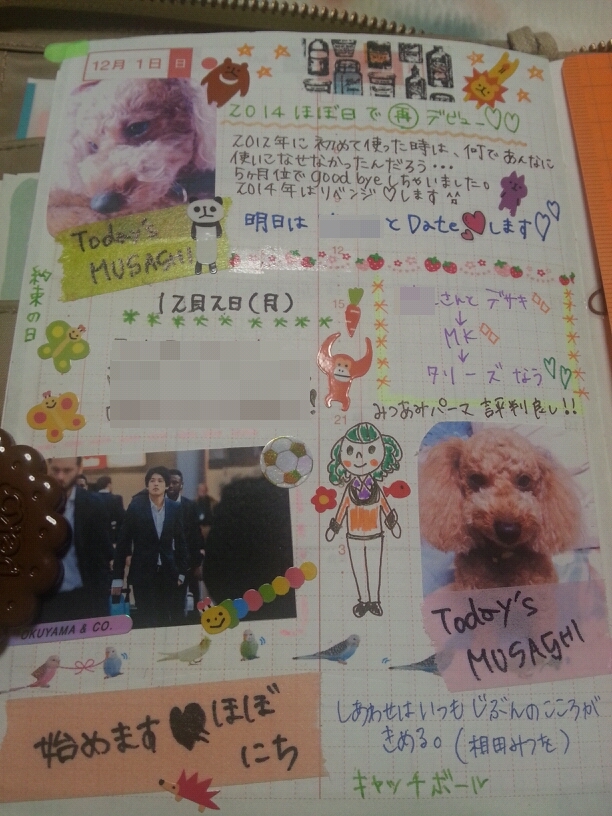 12月 1日 日
2014 ほぼ日で 再 デビュー♡♡
2012年に初めて使った時は、何であんなに
使いこなせなかったんだろう・・・
5ヶ月位で good byeしちゃいました。
2014年はリベンジ♡します^^
明日は と Date♥します♡♡
Today's
MUSASHI
12
12月2日(月)
15
さんと デザキ
↓
MK
↓
タリーズ なう♡♡
!
21
みつあみパーマ 評判良し!!
3
Today's
MUSASHI
OKUYAMA & CO.
始めます♥ほぼ
にち
しあわせはいつも じぶんのこころが
きめる。(相田みつを)
キャッチボール